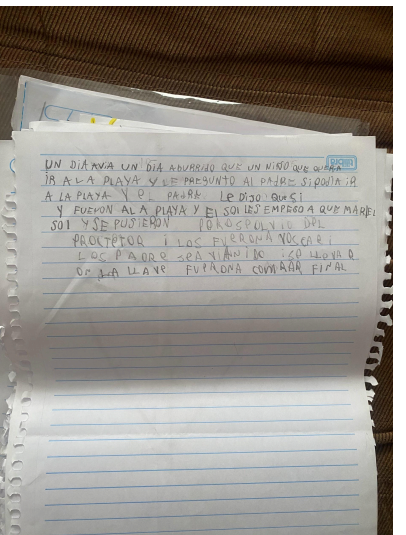 UN DIA AVIA UN DIA ABURRIDO QUE UN NIÑO QUE QUERIA
IR A LA PLAYA Y LE PREGUNTO AL PADRE SI PODIA IR
A LA PLAYA Y EL PADRE LE DIJO QUE SI
Y FUERON A LA PLAYA Y EL SOL LES EMPESO A QUEMAR EL
SOL Y SE PUSIERON DEL
PROCTETOR I LOS FUERON A
LOS PADRE SE AVIAN IDO
LA LLAVE FUERON A COMPRAR FINAL